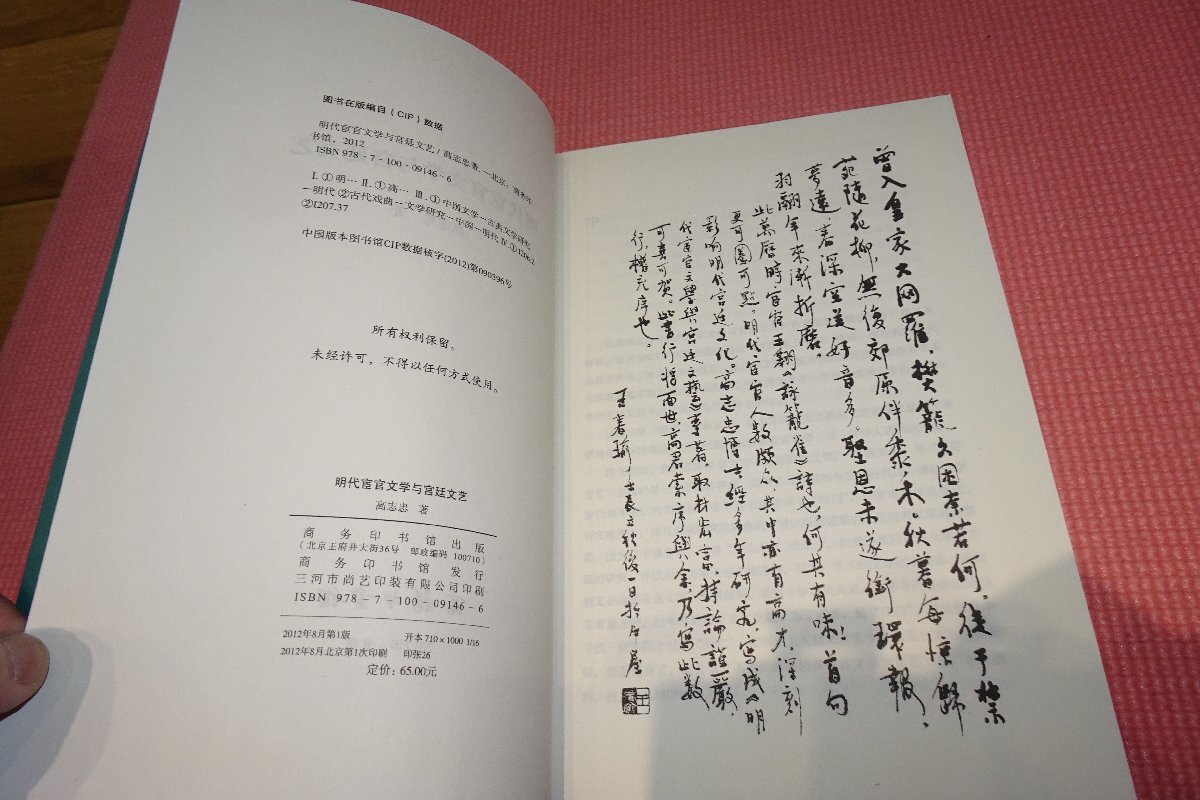 图书在版编目（CIP）数据
明代宦官文学与宫廷文艺/高志忠著.—北京：商务印
书馆，2012
ISBN 978-7-100-09146-6
Ⅰ.①明… Ⅱ.①高… Ⅲ.①中国文学—古典文学研究
—明代②古代戏曲—文学研究—中国—明代 Ⅳ.①I206.2
②I207.37
中国版本图书馆CIP数据核字(2012)第090396号
所有权利保留。
未经许可，不得以任何方式使用。
明代宦官文学与宫廷文艺
高志忠 著
商务印书馆出版
（北京王府井大街36号 邮政编码 100710）
商务印书馆发行
三河市尚艺印装有限公司印刷
ISBN 978-7-100-09146-6
2012年8月第1版 开本 710×1000 1/16
2012年8月北京第1次印刷 印张26
定价：65.00元
曾入皇家大网羅，樊籠久困奈若何。從于禁
苑隨花柳，無復郊原伴黍禾。秋暮每惊歸
夢遠，春深空送好音多。聖恩未遂銜環報，
羽翮年來漸折磨。
此萬曆時宦官王翱《詠籠雀》詩也。何其有味！首句
更可圈可點。明代宦官人數頗众，其中亦有高才，深刻
影响明代宫廷文化。高志忠博士經多年研究，寫成《明
代宦官文學與宫廷文藝》專著，取材宏富，持論謹嚴，
可喜可賀。此書行將面世，高君索序與余，乃寫此數
行，權充序也。
王春瑜 壬辰立秋後一日於